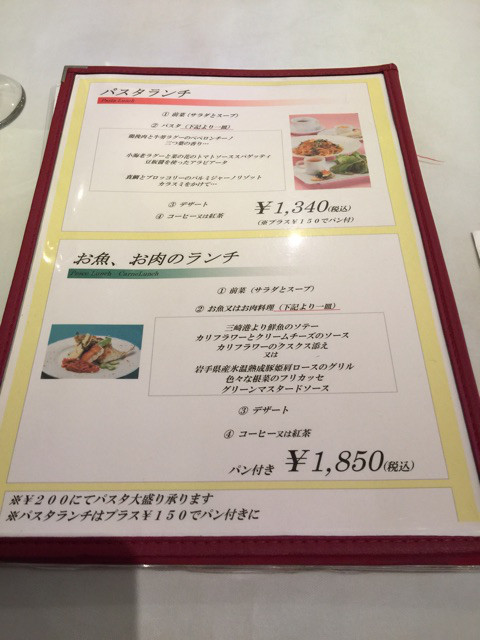 パスタランチ
Pasta Lunch
① 前菜（サラダとスープ）
② パスタ（下記より一皿）
三つ葉の香り…
小海老ラグーと菜の花のトマトソーススパゲッティ
豆板醤を使ったアラビアータ
真鯛とブロッコリーのパルミジャーノリゾット
カラスミをかけて…
③ デザート
④ コーヒー又は紅茶
￥1,340(税込)
(※プラス￥150でパン付)
お魚、お肉のランチ
① 前菜（サラダとスープ）
② お魚又はお肉料理（下記より一皿）
三崎港より鮮魚のソテー
カリフラワーとクリームチーズのソース
カリフラワーのクスクス添え
又は
岩手県産氷温熟成豚姫肩ロースのグリル
色々な根菜のフリカッセ
グリーンマスタードソース
③ デザート
④ コーヒー又は紅茶
パン付き ￥1,850(税込)
※￥200にてパスタ大盛り承ります
※パスタランチはプラス￥150でパン付きに